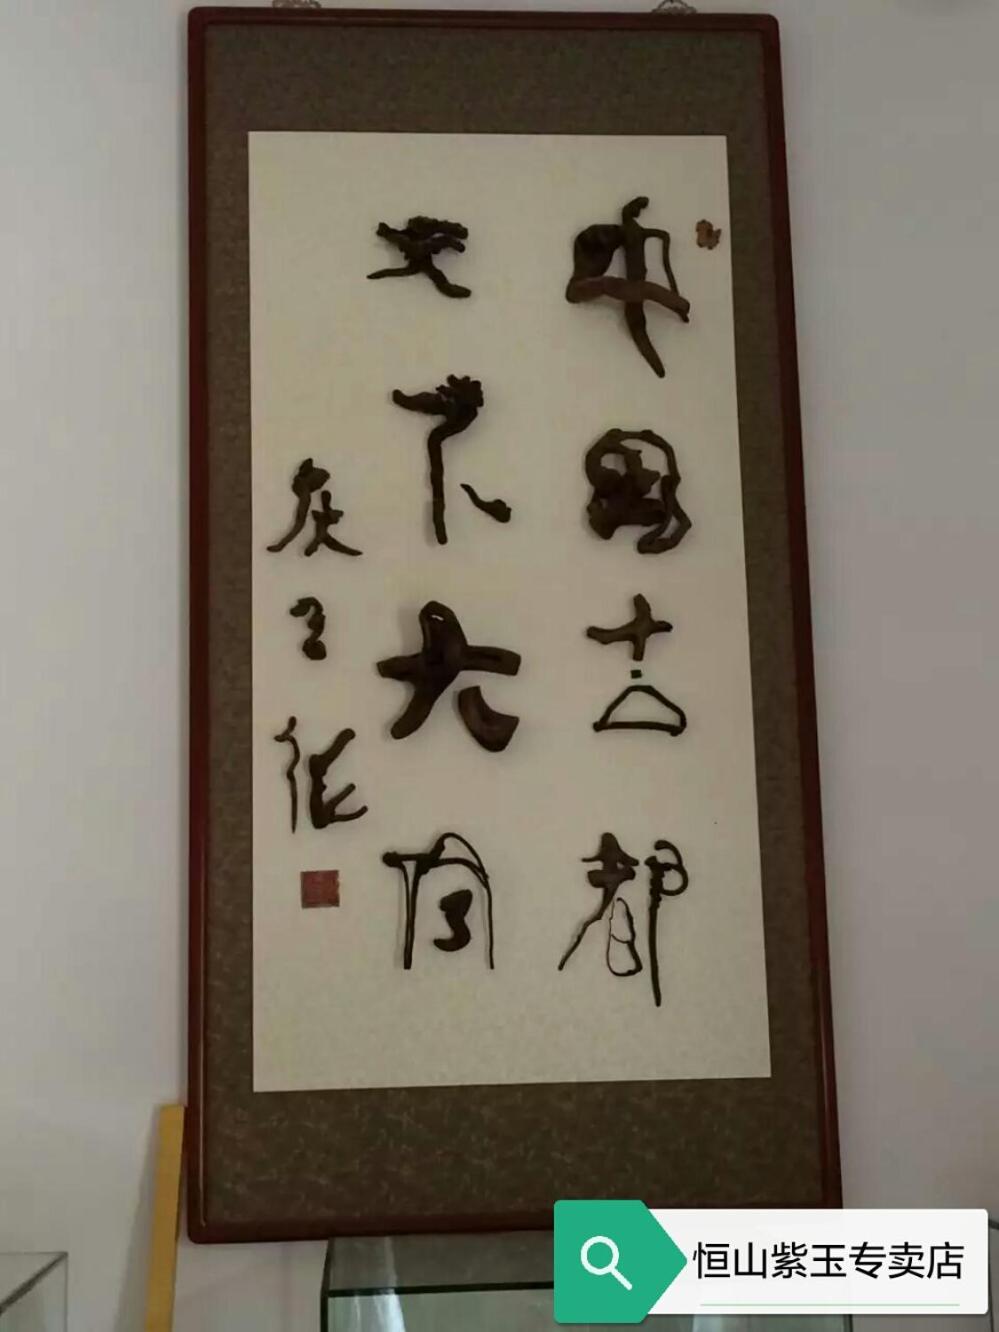 中国古都
天下大同
恒山紫玉专卖店